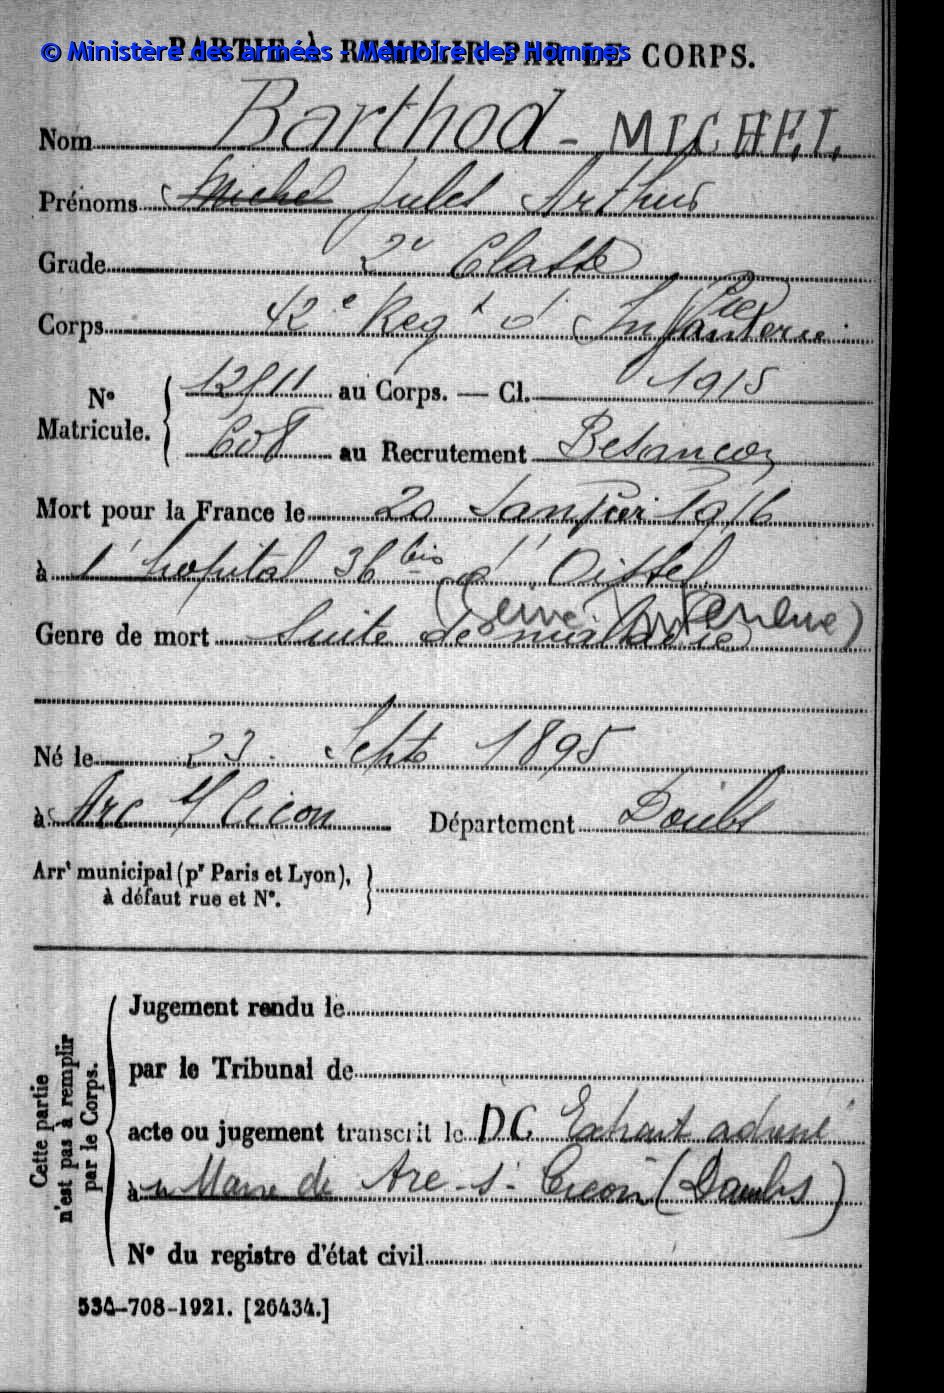 © Ministère des armées - Mémoire des Hommes
PARTIE À REMPLIR PAR LE CORPS.
Nom Barthod - MICHEL
Prénoms Michel Jules Arthur
Grade 2e Classe
Corps 42e Regt d'Infanterie
N° Matricule. 12911 au Corps. — Cl. 1915
608 au Recrutement Besançon
Mort pour la France le 20 Janvier 1916
à l'hopital 36 bis d'Oissel
(Seine Inferieure)
Genre de mort Suite de maladie
Né le 23 Septe 1895
à Arc s/ Cicon Département Doubs
Arrt municipal (pr Paris et Lyon),
à défaut rue et N°.
Cette partie
n'est pas à remplir
par le Corps.
Jugement rendu le
par le Tribunal de
acte ou jugement transcrit le DC Extrait adressé
à u Maire de Arc-s-Cicon (Doubs)
N° du registre d'état civil
534-708-1921. [26434.]